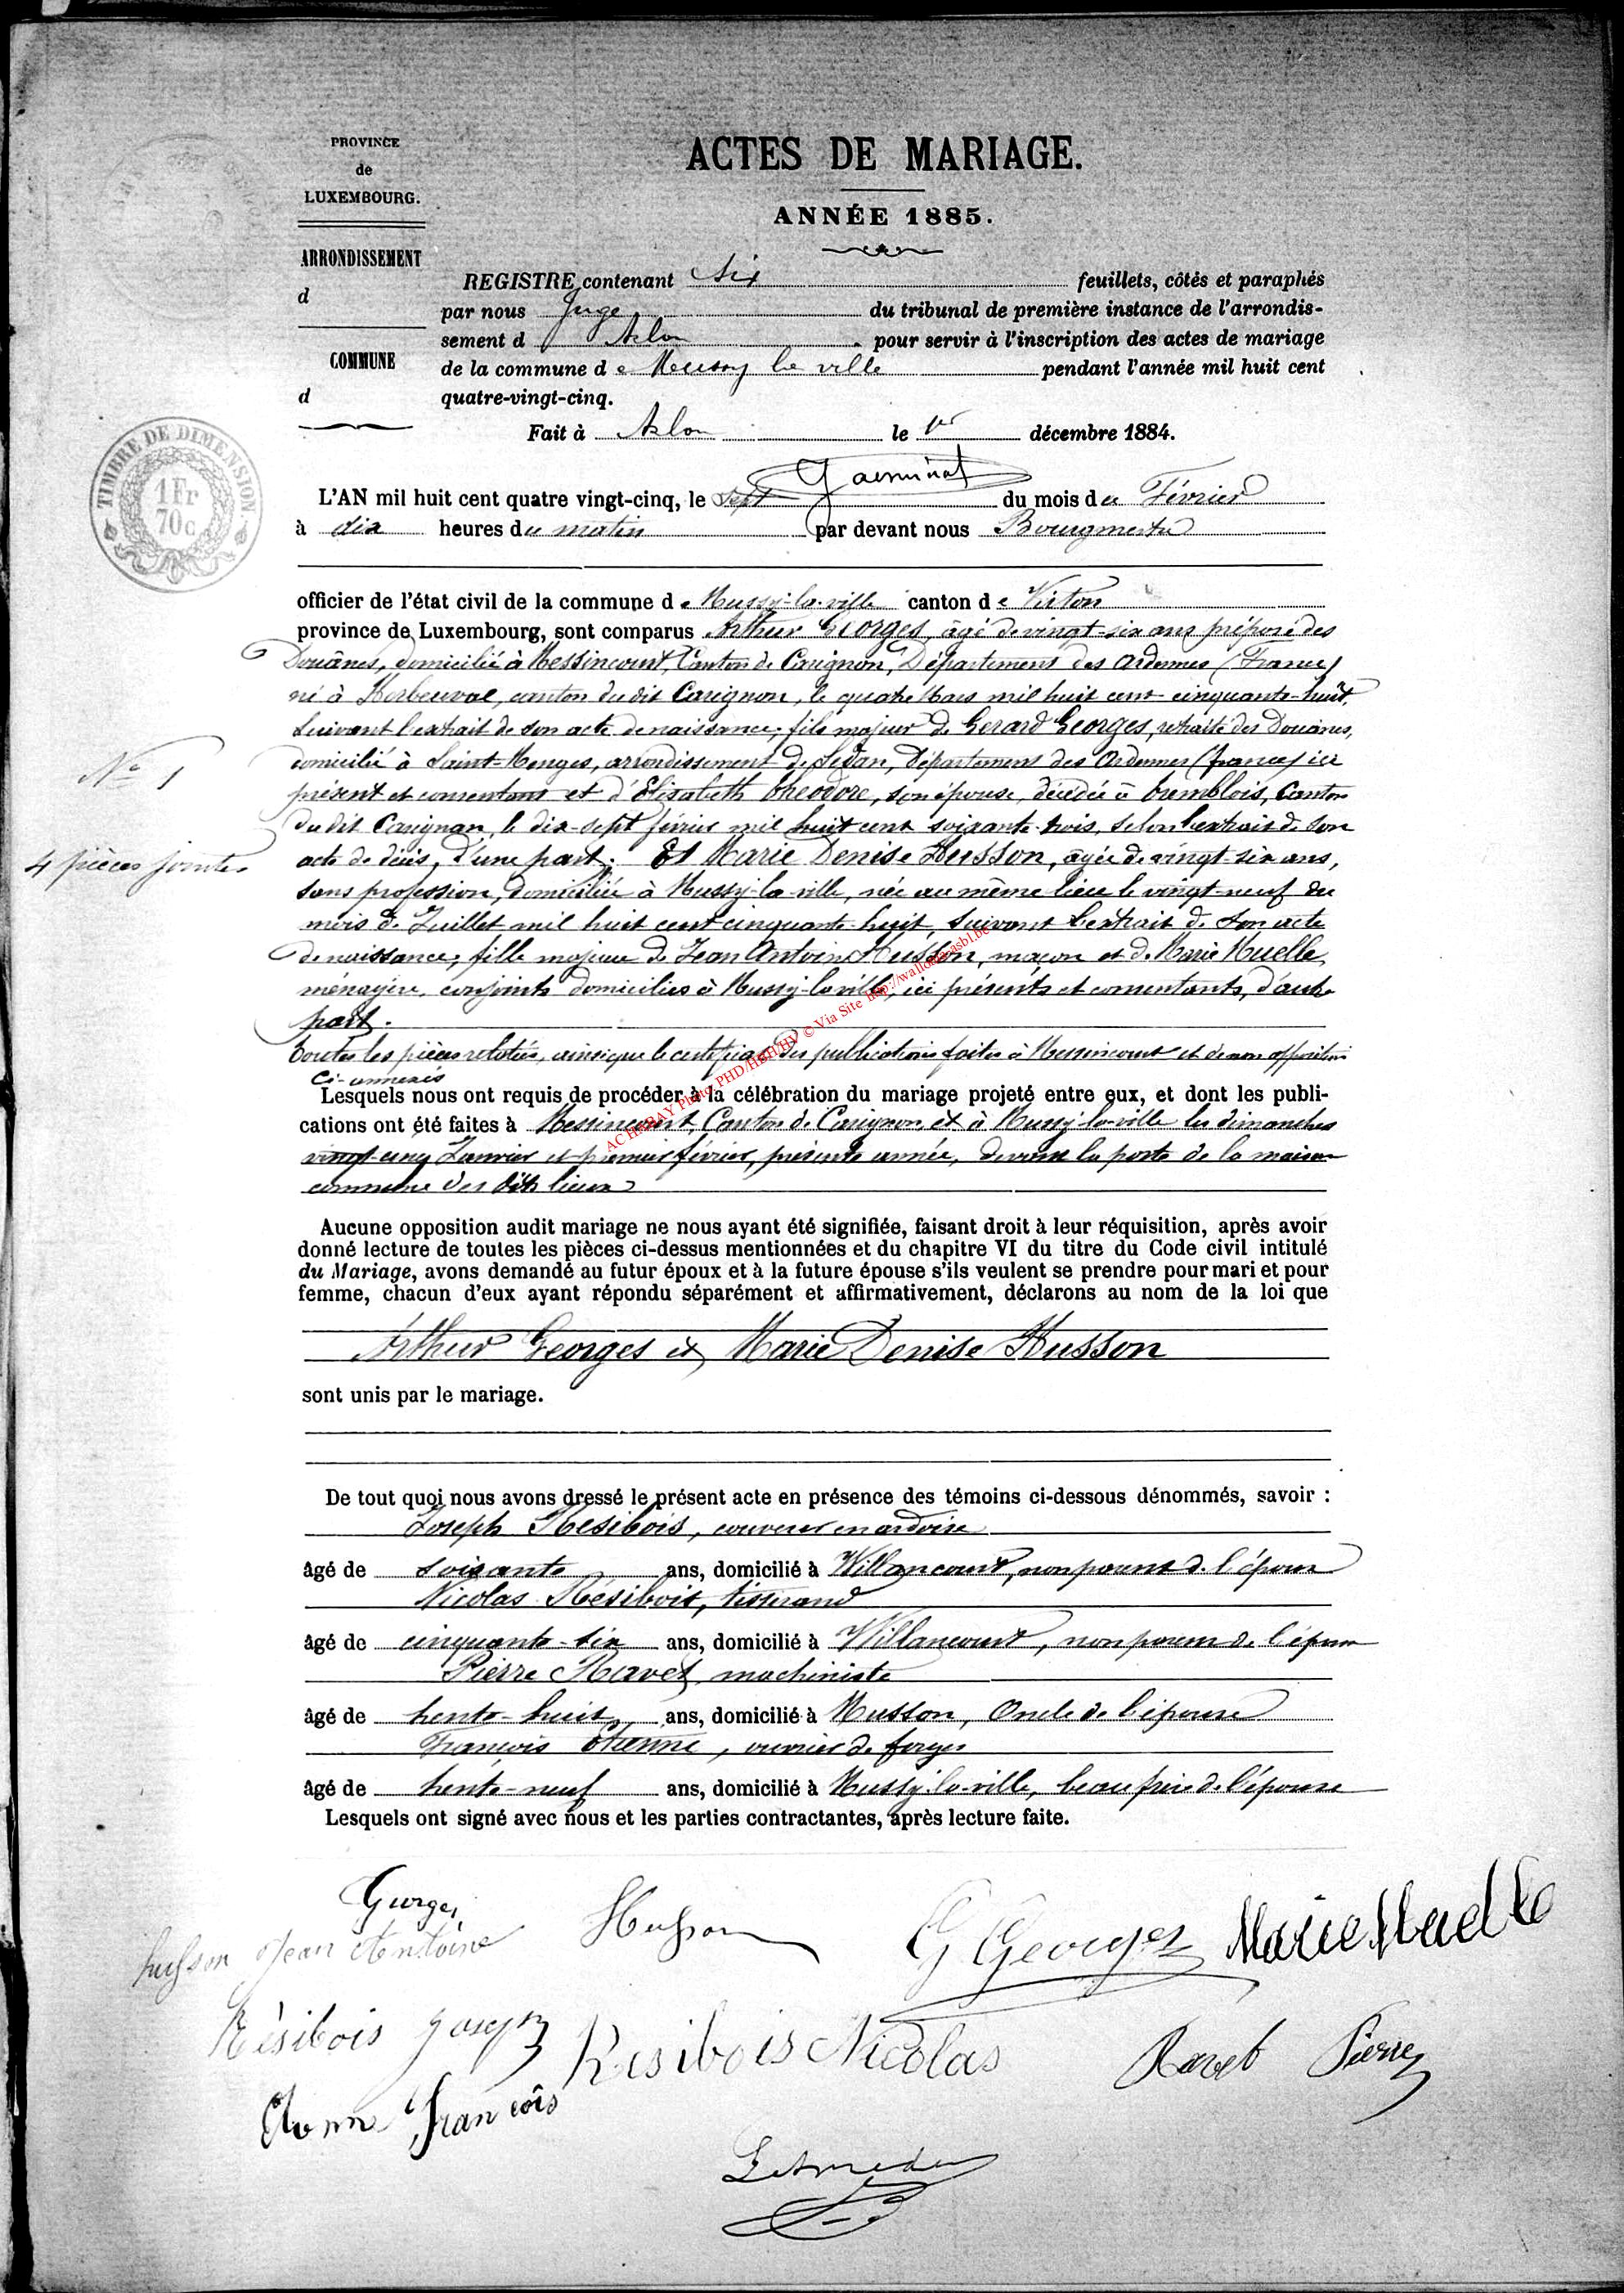 PROVINCE
de
LUXEMBOURG.
ARRONDISSEMENT
d
COMMUNE
d
ACTES DE MARIAGE.
ANNÉE 1885.
REGISTRE contenant six feuillets, côtés et paraphés
par nous Juge du tribunal de première instance de l'arrondis-
sement d Arlon pour servir à l'inscription des actes de mariage
de la commune de Meussy la ville pendant l'année mil huit cent
quatre-vingt-cinq.
Fait à Arlon le 1er décembre 1884.
TIMBRE DE DIMENSION
1 Fr
70 c
L'AN mil huit cent quatre vingt-cinq, le sept du mois de Février
à dix heures du matin par devant nous Bourgmestre
officier de l'état civil de la commune de Mussy-la-ville canton de Virton
province de Luxembourg, sont comparus Arthur Georges, âgé de vingt-six ans préposé des
Douânes, domicilié à Messincourt, Canton de Carignan, Département des Ardennes (France)
né à Herbeuval, canton du dit Carignan, le quatre Mars mil huit cent cinquante-huit,
suivant l'extrait de son acte de naissance; fils majeur de Gerard Georges, retraité des Douânes,
domicilié à Saint-Menges, arrondissement de Sedan, Département des Ardennes (france) ici
présent et consentant et d'Elisabeth Theodore, son épouse, décédée à tremblois, Canton
du dit Carignan, le dix-sept février mil huit cent soixante-trois, selon l'extrait de son
acte de décès, d'une part; Et Marie Denise Husson, âgée de vingt-six ans,
sans profession, domiciliée à Mussy-la-ville, née au même lieu le vingt-neuf du
mois de Juillet mil huit cent cinquante-huit, suivant l'extrait de son acte
de naissance; fille majeure de Jean Antoine Husson, maçon et de Marie Muelle,
ménagère, conjoints domiciliés à Mussy-la-ville, ici présents et consentants, d'autre
part.
Toutes les pièces relatées, ainsi que le certificat des publications faites à Messincourt et de non opposition
ci-annexés
N° 1
4 pièces jointes
AC HABAY Photo PHD/HBH/HV © Via Site http://wallonia-asbl.be
Lesquels nous ont requis de procéder à la célébration du mariage projeté entre eux, et dont les publi-
cations ont été faites à Messincourt, Canton de Carignan, et à Mussy-la-ville les dimanches
vingt-cinq Janvier et premier février, présente année, devant la porte de la maison
commune des dits lieux
Aucune opposition audit mariage ne nous ayant été signifiée, faisant droit à leur réquisition, après avoir
donné lecture de toutes les pièces ci-dessus mentionnées et du chapitre VI du titre du Code civil intitulé
du Mariage, avons demandé au futur époux et à la future épouse s'ils veulent se prendre pour mari et pour
femme, chacun d'eux ayant répondu séparément et affirmativement, déclarons au nom de la loi que
Arthur Georges et Marie Denise Husson
sont unis par le mariage.
De tout quoi nous avons dressé le présent acte en présence des témoins ci-dessous dénommés, savoir :
Joseph Résibois, couvreur en ardoise
âgé de soixante ans, domicilié à Willancourt, non parent de l'époux
Nicolas Résibois, tisserand
âgé de cinquante-six ans, domicilié à Willancourt, non parent de l'époux
Pierre Ravet, machiniste
âgé de trente-huit ans, domicilié à Musson, Oncle de l'épouse
François Etienne, ouvrier de forges
âgé de trente-neuf ans, domicilié à Mussy-la-ville, beau frère de l'épouse
Lesquels ont signé avec nous et les parties contractantes, après lecture faite.
Gurges
Husson
G Georges
Marie Muelle
husson Jean Antoine
Résibois Joseph
Résibois Nicolas
Ravet Pierre
François